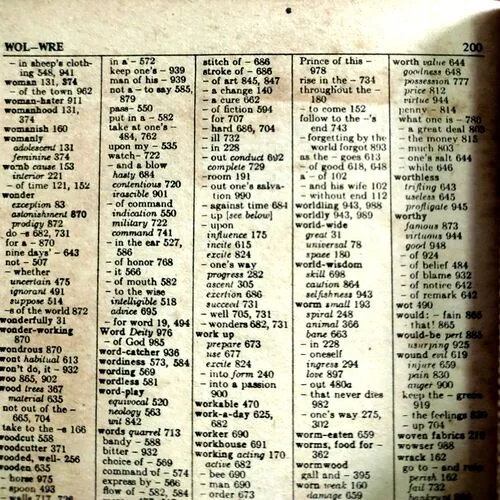 WOL–WRE
200
– in sheep's cloth-
ing 548, 941
woman 131, 374
– of the town 962
woman-hater 911
womanhood 131,
374
womanish 160
womanly
adolescent 131
feminine 374
womb cause 153
interior 221
– of time 121, 152
wonder
exception 83
astonishment 870
prodigy 872
do –s 682, 731
for a – 870
nine days' – 643
not – 507
– whether
uncertain 475
ignorant 491
suppose 514
–s of the world 872
wonderfully 31
wonder-working
870
wondrous 870
wont habitual 613
won't do, it – 932
woo 865, 902
wood trees 367
material 635
not out of the –
665, 704
take to the –s 166
woodcut 558
woodcutter 371
wooded, well- 256
wooden 635
– horse 975
– spoon 493
in a – 572
keep one's – 939
man of his – 939
not a – to say 585,
879
pass- 550
put in a – 582
take at one's –
484, 762
upon my – 535
watch- 722
– and a blow
hasty 684
contentious 720
irascible 901
– of command
indication 550
military 722
command 741
– in the ear 527,
586
– of honor 768
– it 566
– of mouth 582
– to the wise
intelligible 518
advice 695
– for word 19, 494
Word Deity 976
– of God 985
word-catcher 936
wordiness 573, 584
wording 569
wordless 581
word-play
equivocal 520
neology 563
wit 842
words quarrel 713
bandy – 588
bitter – 932
choice of – 569
command of – 574
express by – 566
flow of – 582, 584
stitch of – 686
stroke of – 686
– of art 845, 847
– a change 140
– a cure 662
– of fiction 594
– for 707
– hard 686, 704
– ill 732
– in 228
– out conduct 692
complete 729
– room 191
– out one's salva-
tion 990
– against time 684
– up [see below]
– upon
influence 175
incite 615
excite 824
– one's way
progress 282
ascent 305
exertion 686
succeed 731
– well 705, 731
– wonders 682, 731
work up
prepare 673
use 677
excite 824
– into form 240
– into a passion
900
workable 470
work-a-day 625,
682
worker 690
workhouse 691
working acting 170
active 682
– bee 690
– man 690
– order 673
Prince of this –
978
rise in the – 734
throughout the –
180
– to come 152
follow to the –'s
end 743
– forgetting by the
world forgot 893
as the – goes 613
– of good 618, 648
a – of 102
– and his wife 102
– without end 112
worldling 943, 988
worldly 943, 989
world-wide
great 31
universal 78
space 180
world-wisdom
skill 698
caution 864
selfishness 943
worm small 193
spiral 248
animal 366
bane 663
– in 228
– oneself
ingress 294
love 897
– out 480a
– that never dies
982
– one's way 275,
302
worm-eaten 659
worms, food for –
362
wormwood
gall and – 395
worn weak 160
damage 659
worth value 644
goodness 648
possession 777
price 812
virtue 944
penny- 814
what one is – 780
– a great deal 803
– the money 815
– much 803
– one's salt 644
– while 646
worthless
trifling 643
useless 645
profligate 945
worthy
famous 873
virtuous 944
good 948
– of 924
– of belief 484
– of blame 932
– of notice 642
– of remark 642
wot 490
would: – fain 865
– that! 865
would-be pert 885
usurping 925
wound evil 619
injure 659
pain 830
anger 900
keep the – green
919
– the feelings 830
– up 704
woven fabrics 219
wowser 988
wrack 162
go to – and ruin
perish 162
fail 732